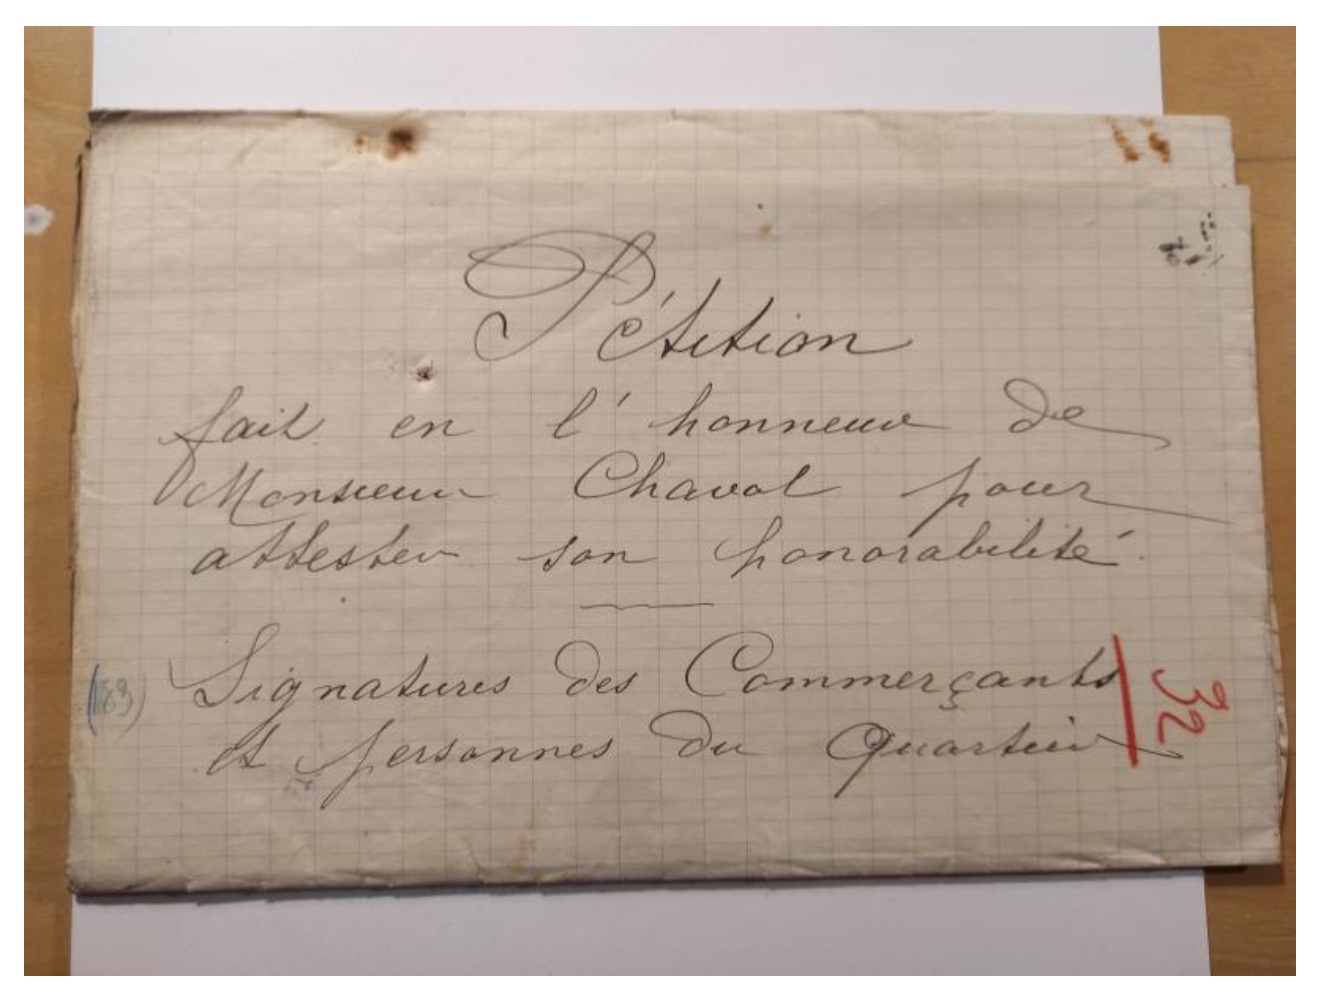 Pétition
fait en l'honneur de
Monsieur Chavat pour
attester son honorabilité.
Signatures des Commerçants
et personnes du Quartier
32
(183)